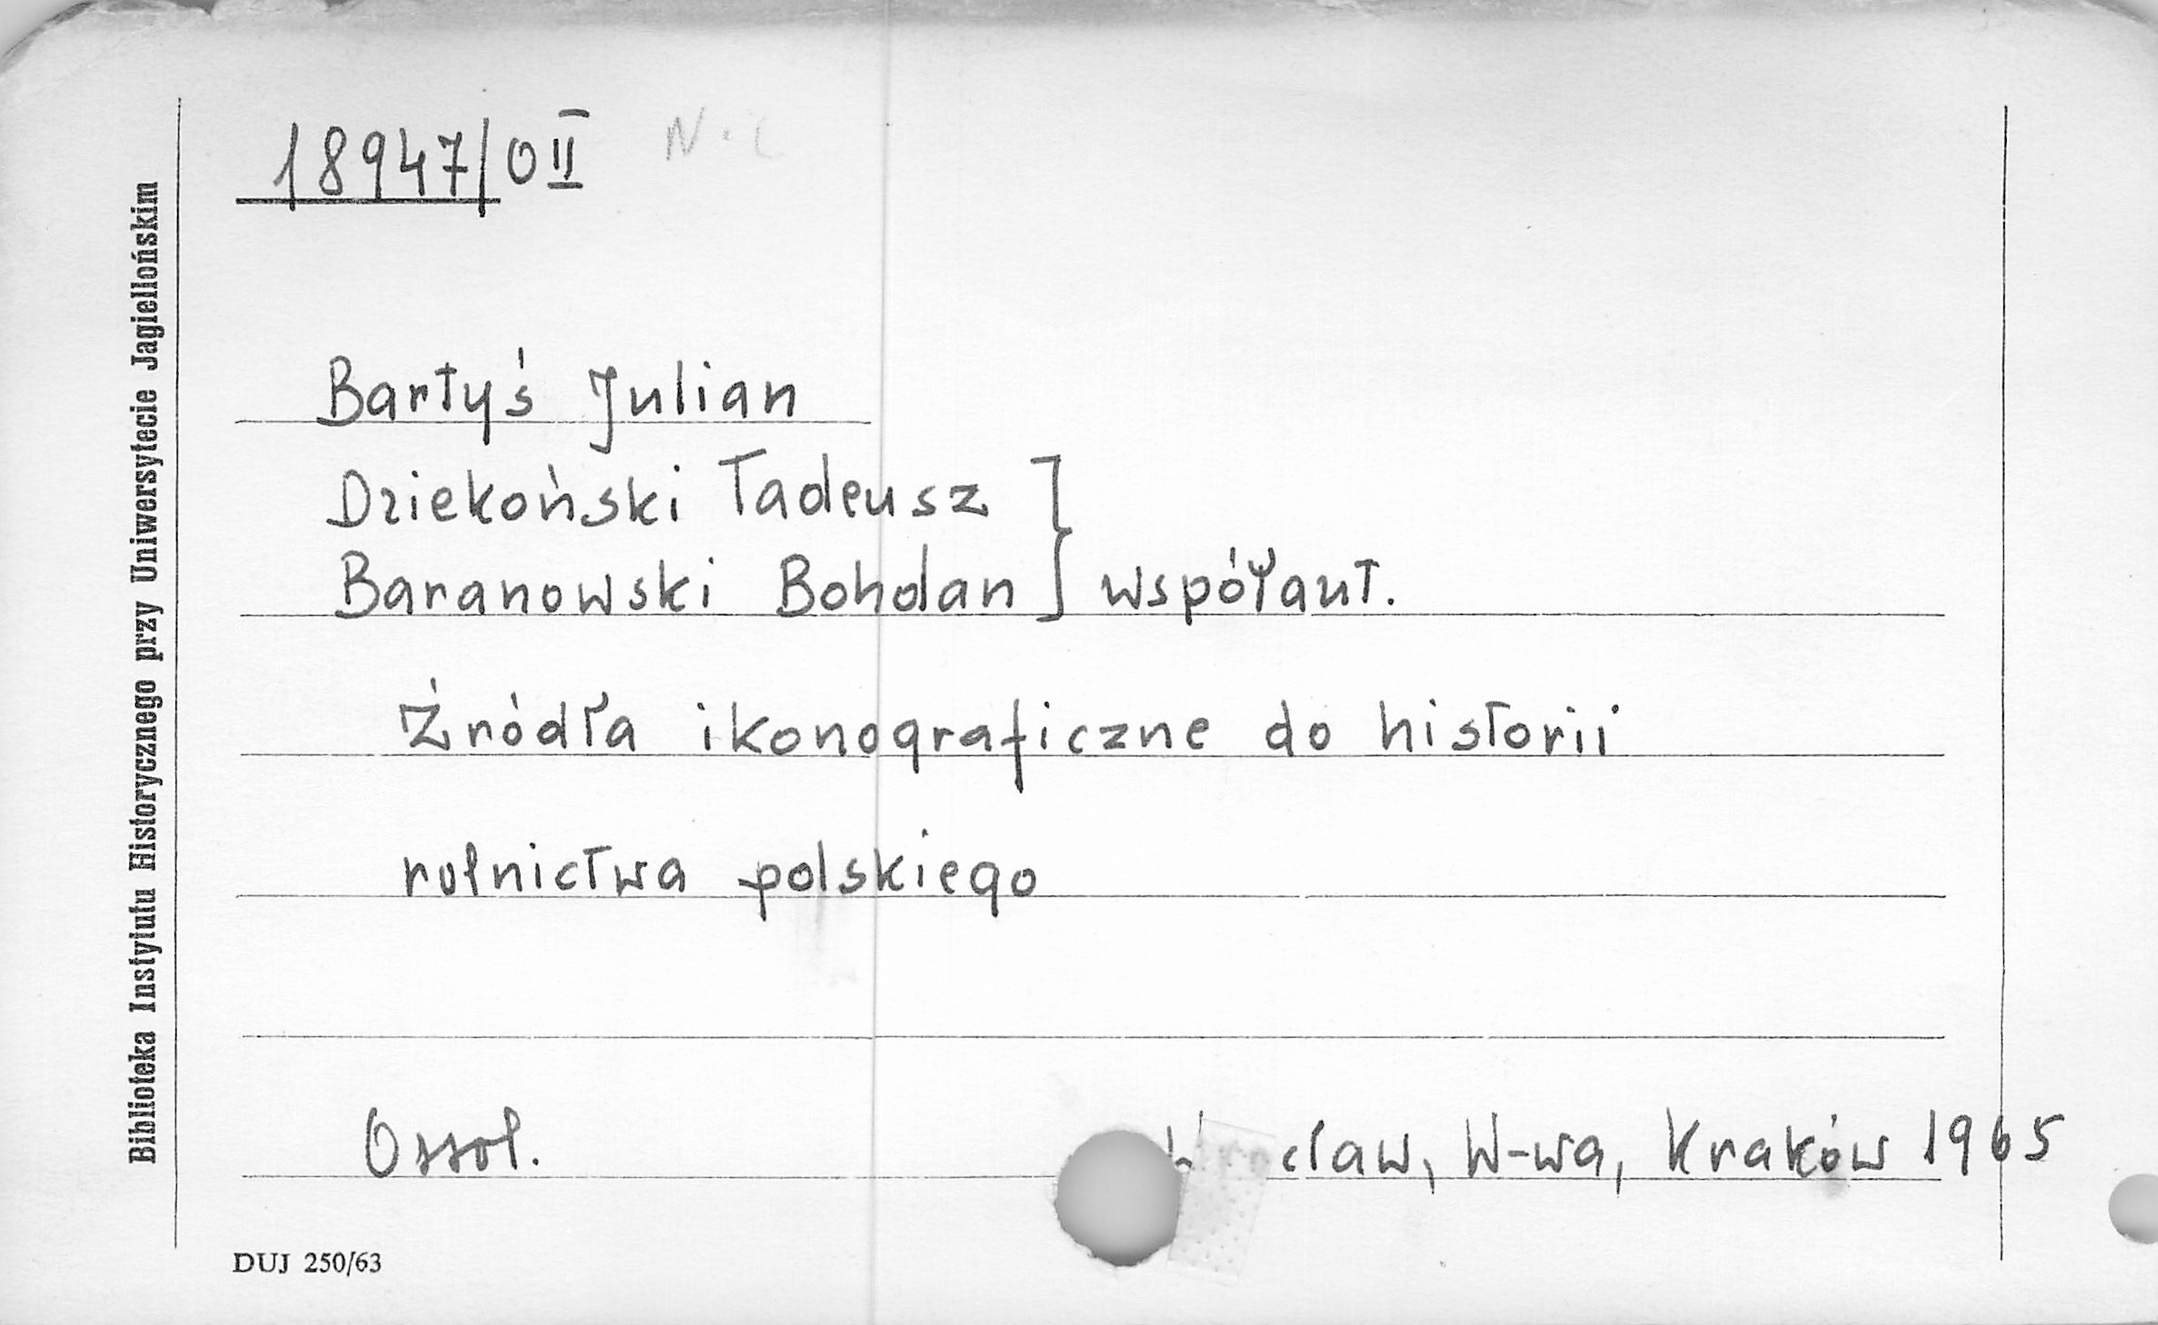 18947/0 II
Bartyś Julian
Dziekoński Tadeusz
Baranowski Bohdan } współaut.
Źródła ikonograficzne do historii
rolnictwa polskiego
Ossol. Wrocław, W-wa, Kraków 1965
DUJ 250/63
Biblioteka Instytutu Historycznego przy Uniwersytecie Jagiellońskim